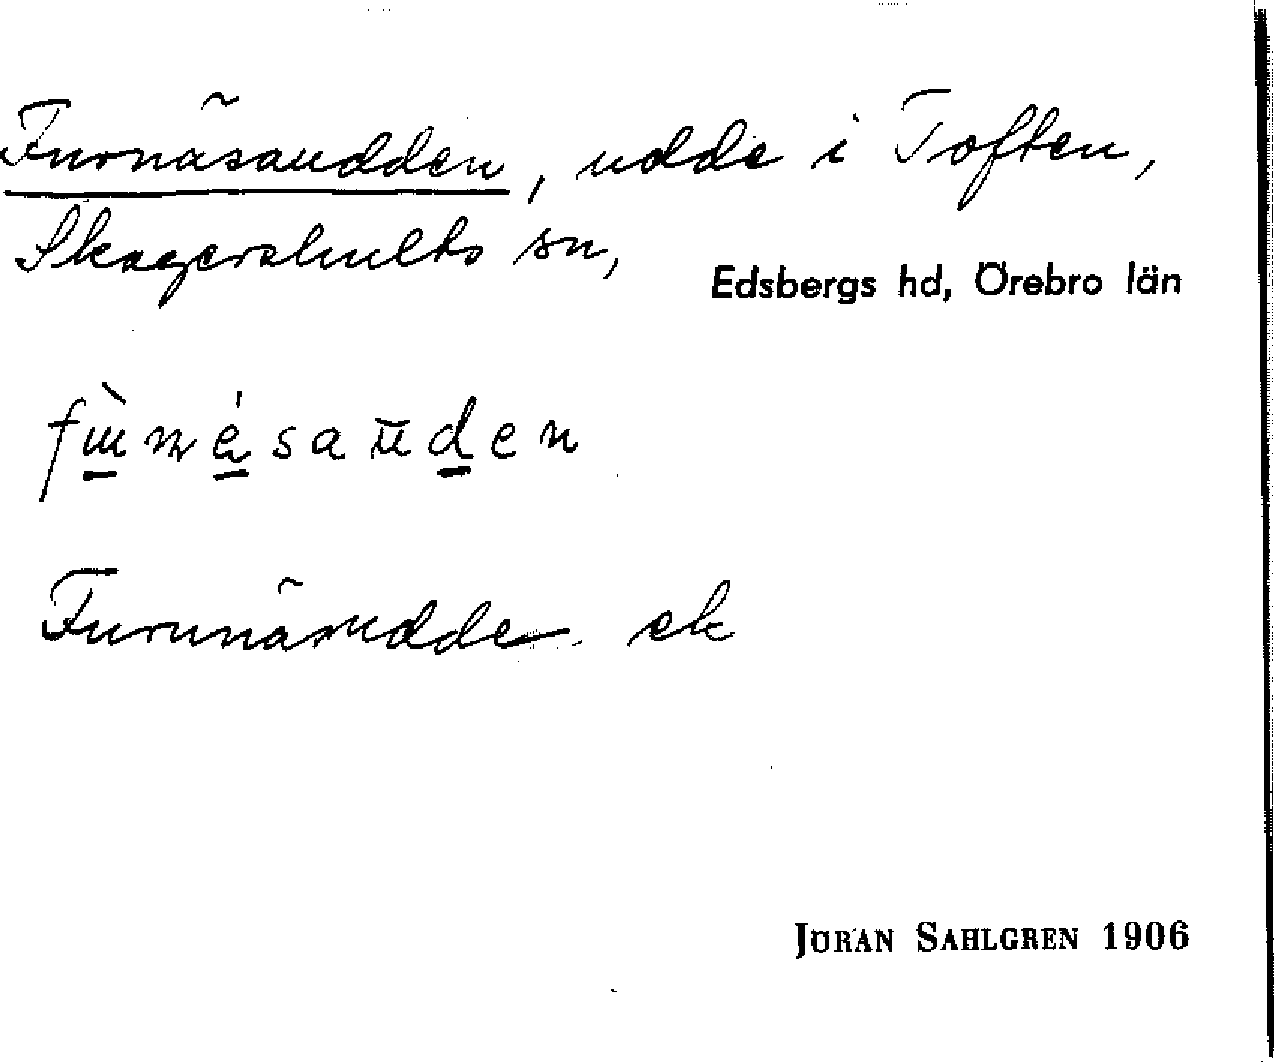 Furnäsaudden, udde i Toften,
Skagershults sn,
Edsbergs hd, Örebro län
Furunäsudde ek
JÖRAN SAHLGREN 1906